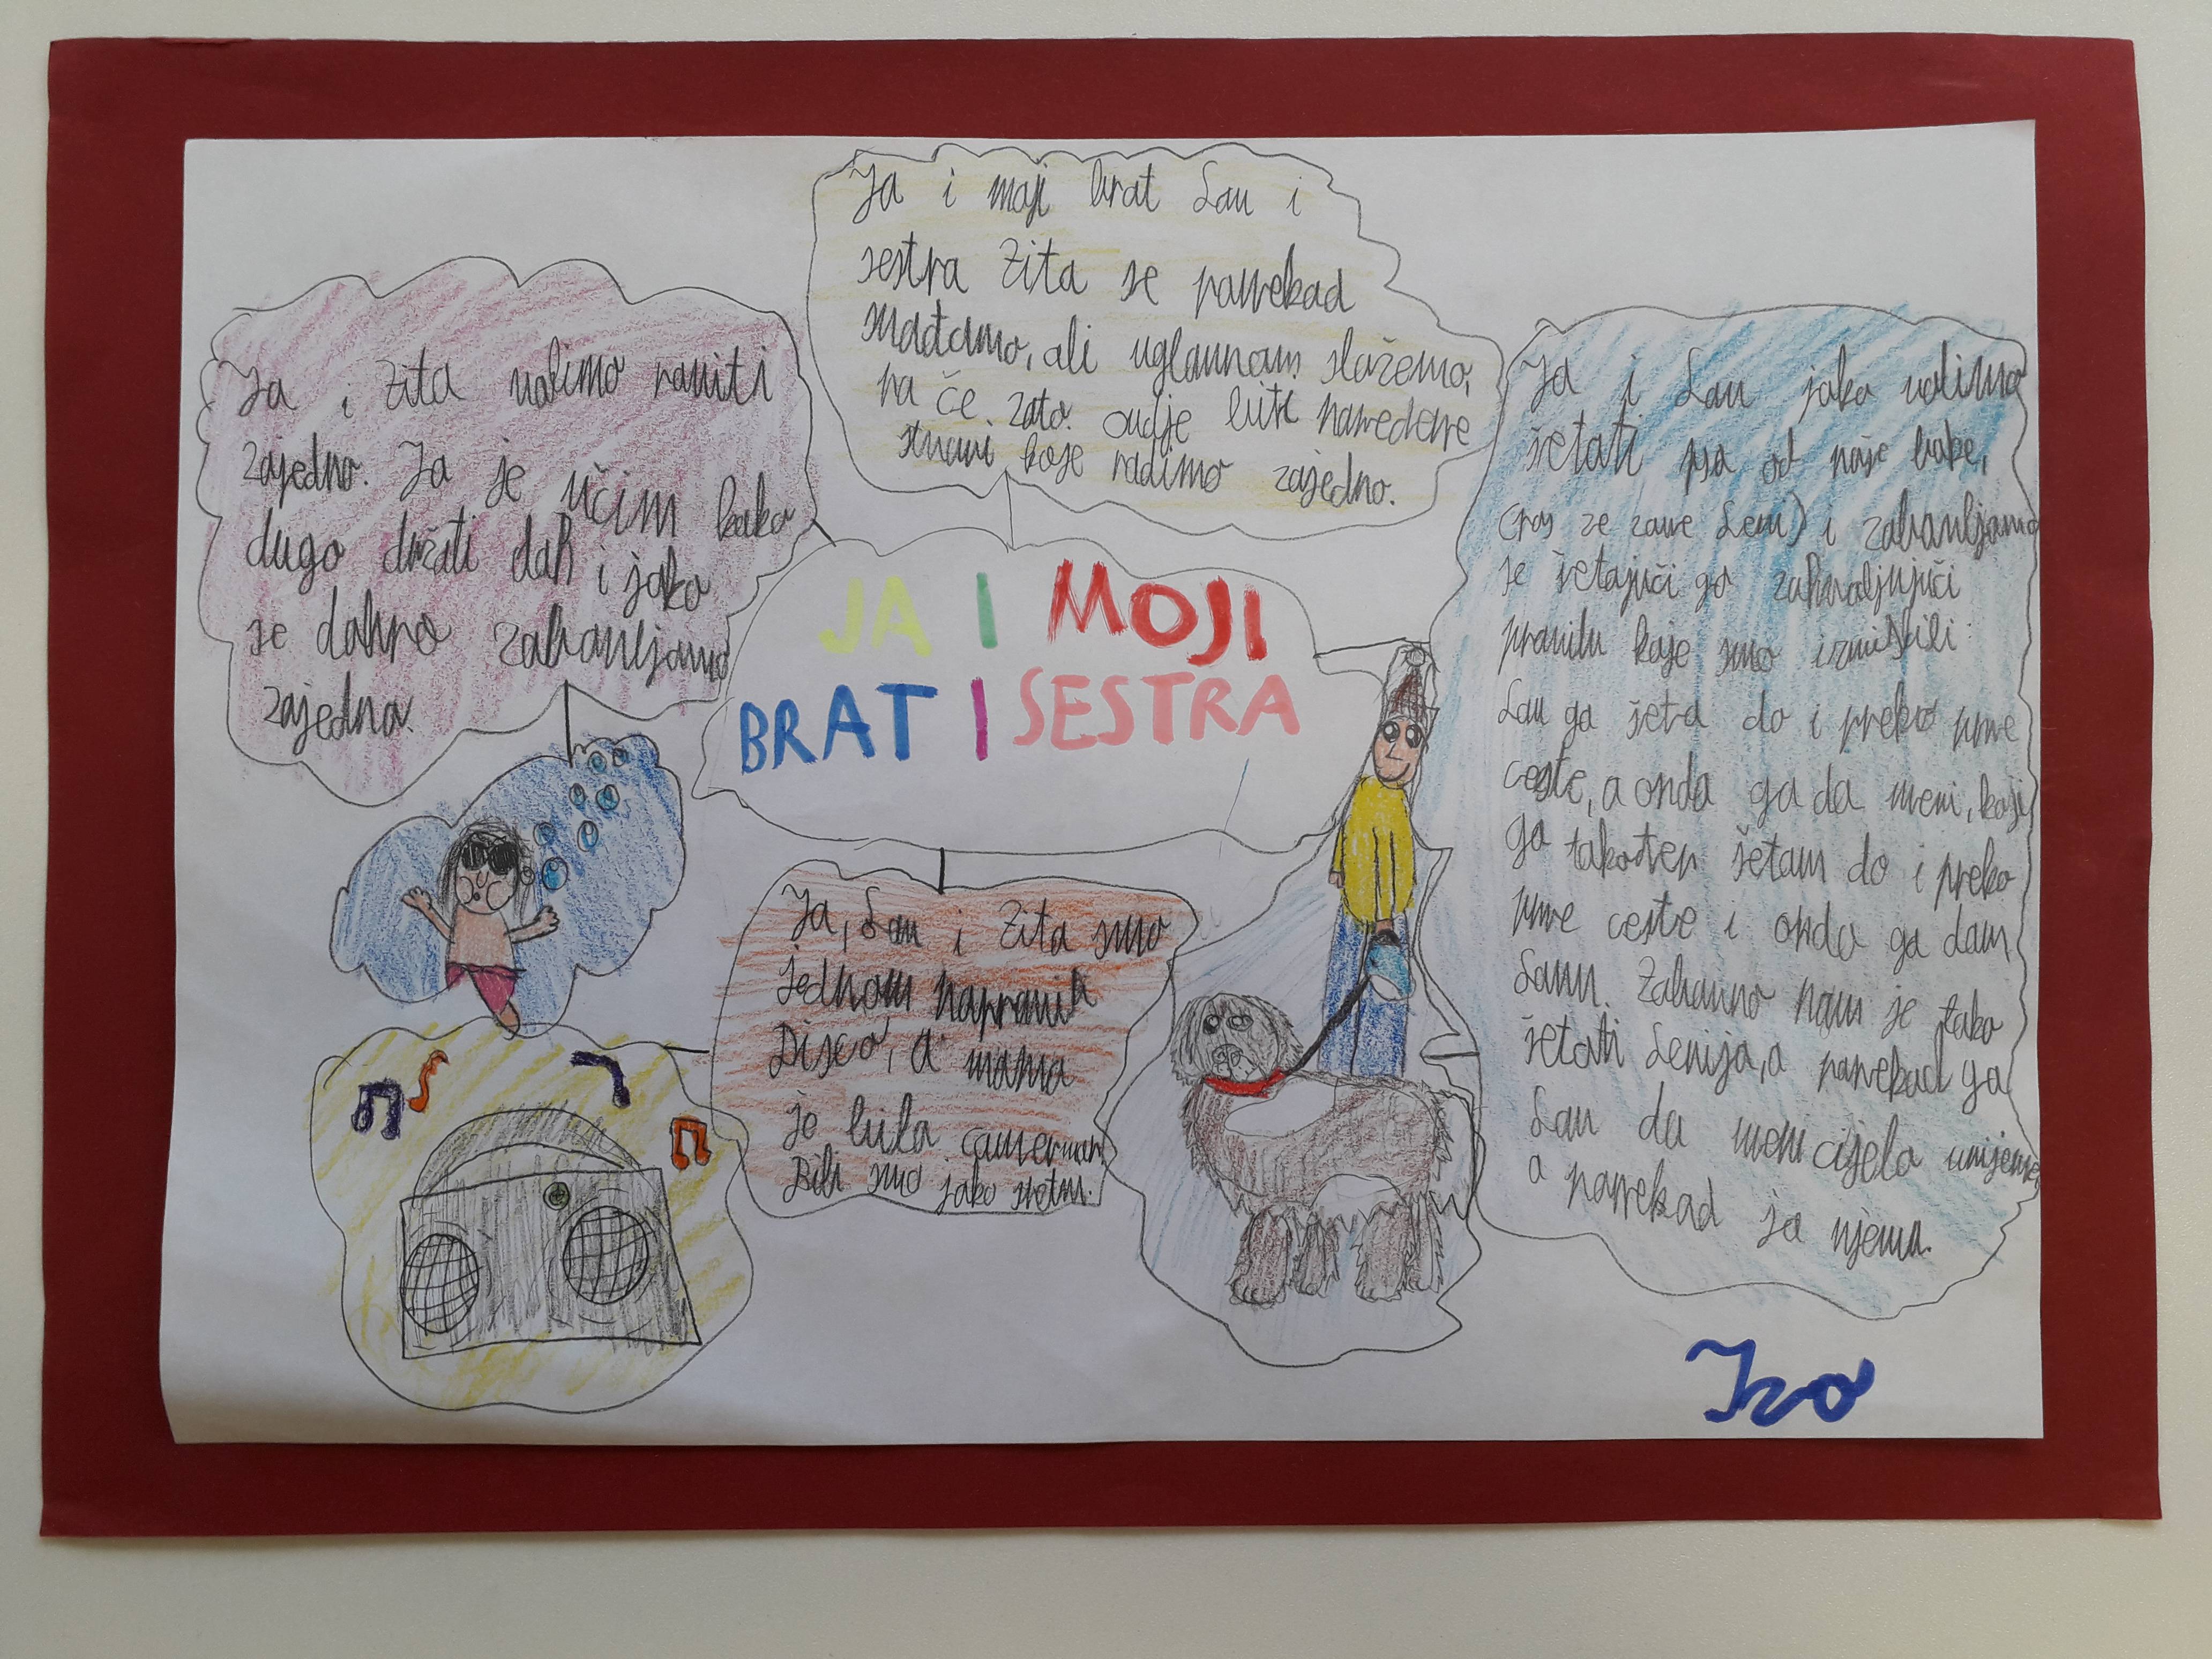 Ja i moji brat Lau i
sestra Zita se ponekad
svađamo, ali uglavnom slažemo,
pa će zato ovdje biti navedene
stvari koje radimo zajedno.
Ja i Zita volimo roniti
zajedno. Ja je učim kako
dugo držati dah i jako
se dobro zabavljamo
zajedno.
JA I MOJI
BRAT I SESTRA
Ja i Lau jako volimo
šetati psa od naše bake,
(pas se zove Leni) i zabavljamo
se šetajući ga zahvaljujući
pravilu koje smo izmislili:
Lau ga šeta do i preko prve
ceste, a onda ga da meni, koji
ga također šetam do i preko
prve ceste i onda ga dam
Lauu. Zabavno nam je tako
šetati Lenija, a ponekad ga
Lau da meni cijelo vrijeme,
a ponekad ja njemu.
Ja, Lau i Zita smo
jednom napravili
Disco, a mama
je bila camerman.
Bili smo jako sretni.
Ivo